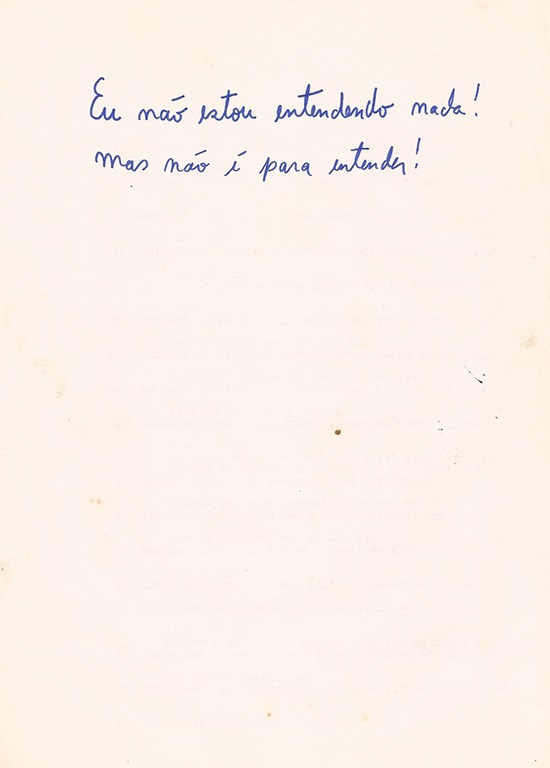 Eu não estou entendendo nada!
mas não é para entender!